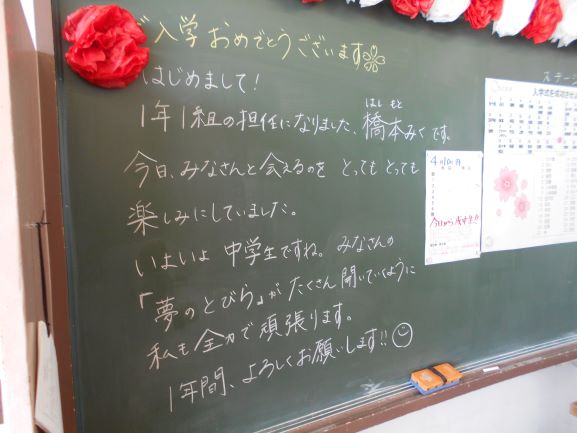 ご入学おめでとうございます
はじめまして！
1年1組の担任になりました、橋本みくです。
はし もと
今日、みなさんと会えるのを とっても とっても
楽しみにしていました。
いよいよ 中学生ですね。 みなさんの
「夢のとびら」が たくさん 開いていくように
私も 全力で 頑張ります。
1年間、よろしくお願いします!!
ステージ